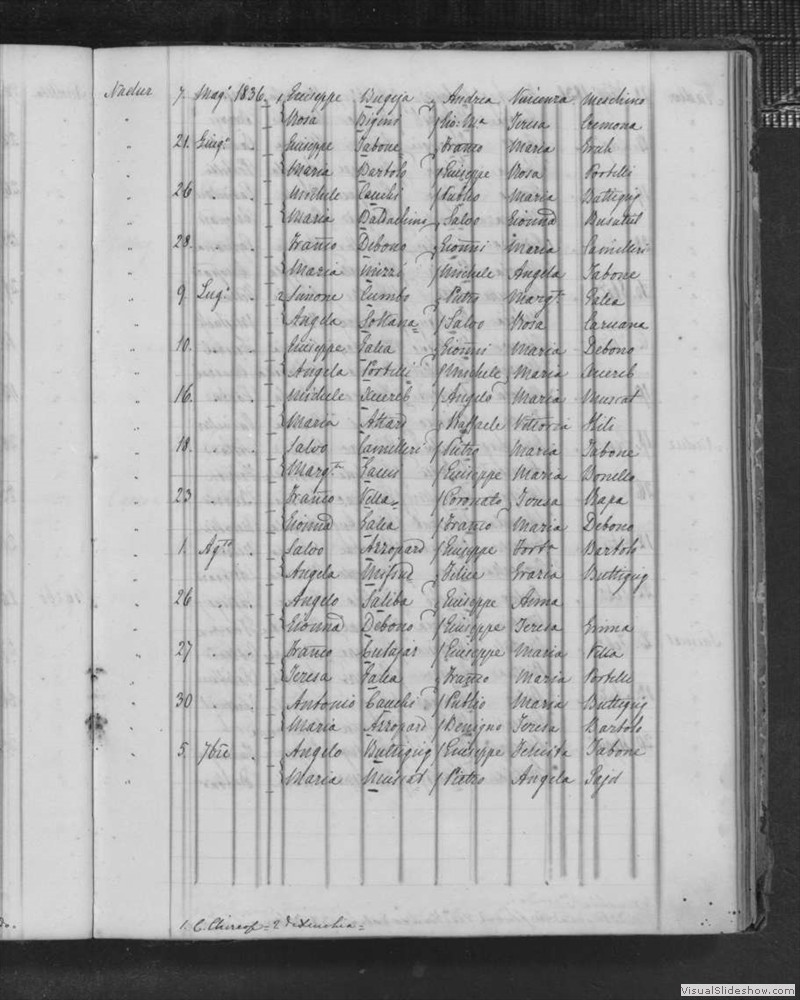 Nadur 7. Mag.o 1836. 1 Giuseppe Bugeja Andrea Vincenza Meschino
" Rosa Teresa Cremona
" 21. Giug.o Giuseppe Tabone Franco Maria
" Maria Bartolo Giuseppe Rosa Portelli
" 26 Michele Cauchi Publio Maria Buttigieg
" Maria Baldachino Salvo Gionna Busuttil
" 28. Franco Debono Gionni Maria Camilleri
" Maria Mizzi Michele Angela Tabone
" 9. Lug.o 2 Simone Cumbo Pietro Marg.ta Galea
" Angela Sultana Salvo Rosa Caruana
" 10. Giuseppe Galea Gionni Maria Debono
" Angela Portelli Michele Maria Xuereb
" 16. Michele Xuereb Angelo Maria Muscat
" Maria Attard Raffaele Vittoria
" 18. Salvo Camilleri Pietro Maria Tabone
" Marg.ta Giuseppe Maria Bonello
" 23 Franco Vella Coronato Teresa Rapa
" Gionna Galea Franco Maria Debono
" 1. Ag.to Salvo Azzopard Giuseppe Bartolo
" Angela Mifsud Felice Grazia Buttigieg
" 26 Angelo Saliba Giuseppe Anna
" Gionna Debono Giuseppe Teresa
" 27 Franco Cutajar Giuseppe Maria Vella
" Teresa Galea Franco Maria Portelli
" 30 Antonio Cauchi Publio Maria Buttigieg
" Maria Azzopard Benigno Teresa Bartolo
" 5. 7bre Angelo Buttigieg Giuseppe Felicita Tabone
" Maria Muscat Pietro Angela Said
1. C. = 2 =
VisualSlideshow.com